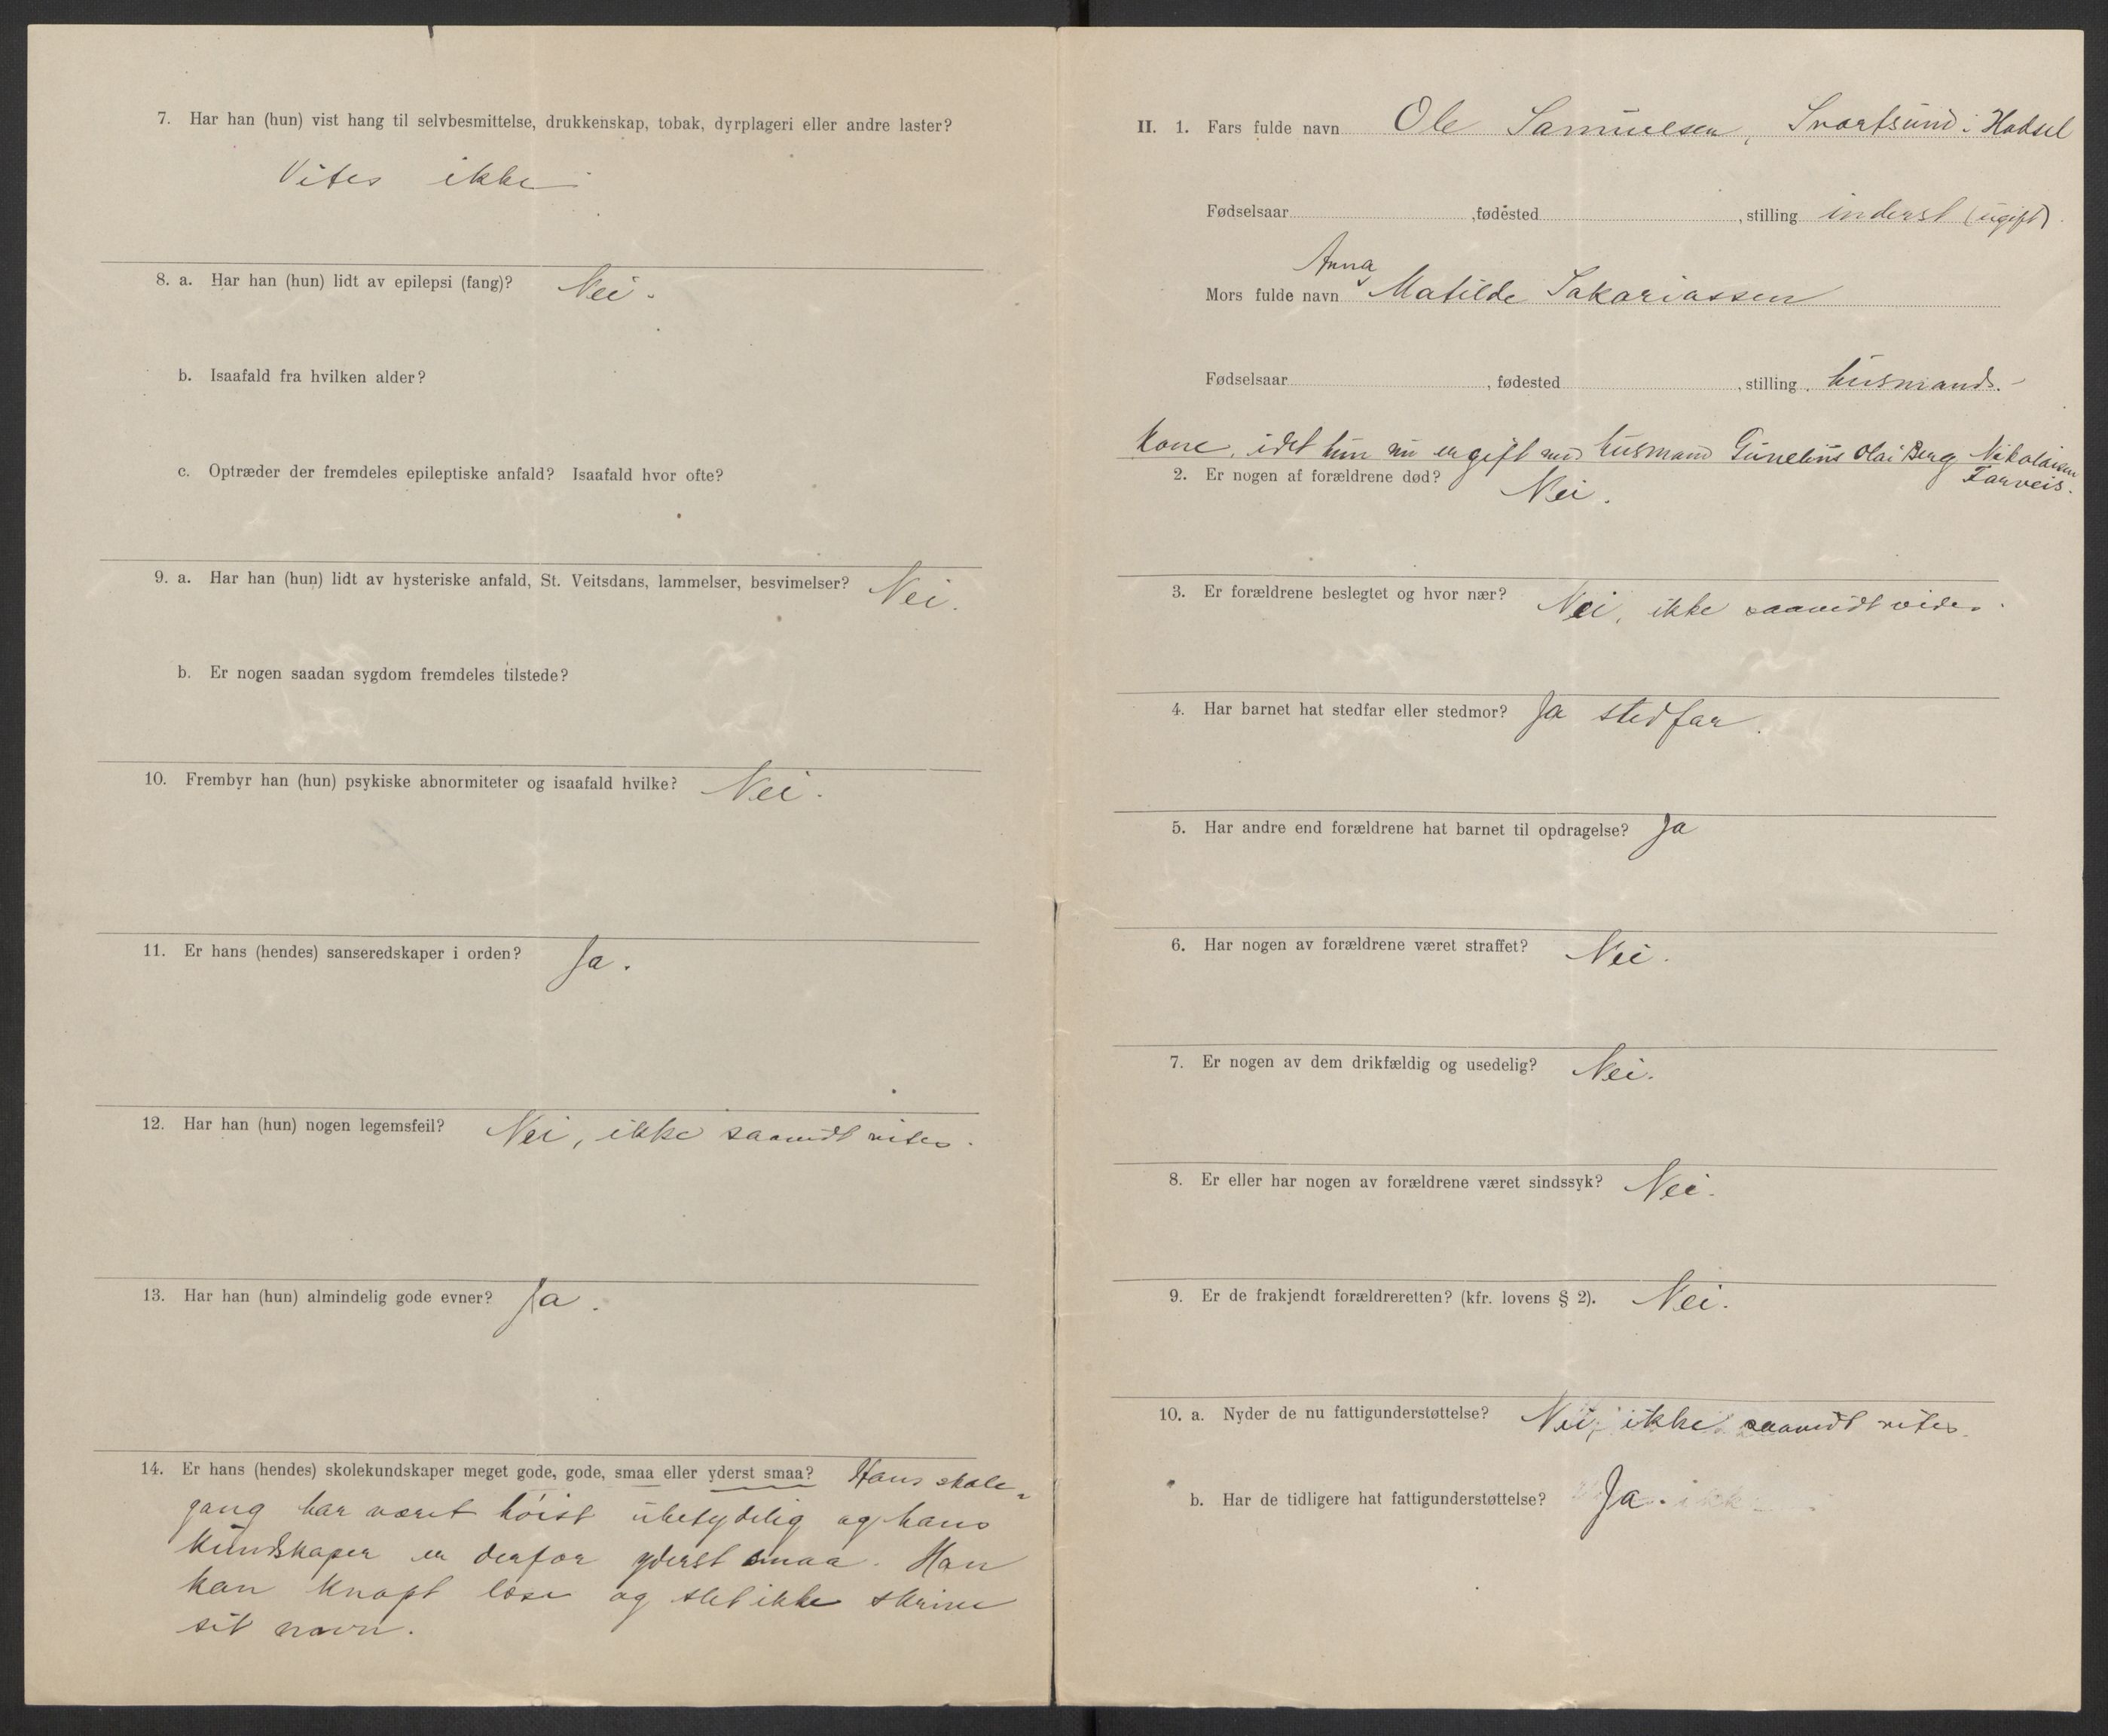 7. Har han (hun) vist hang til selvbesmittelse, drukkenskap, tobak, dyrplageri eller andre laster?
Vites ikke
8. a. Har han (hun) lidt av epilepsi (fang)? Nei.
b. Isaafald fra hvilken alder?
c. Optræder der fremdeles epileptiske anfald? Isaafald hvor ofte?
9. a. Har han (hun) lidt av hysteriske anfald, St. Veitsdans, lammelser, besvimelser? Nei.
b. Er nogen saadan sygdom fremdeles tilstede?
10. Frembyr han (hun) psykiske abnormiteter og isaafald hvilke? Nei.
11. Er hans (hendes) sanseredskaper i orden? Ja.
12. Har han (hun) nogen legemsfeil? Nei, ikke saavidt vites.
13. Har han (hun) almindelig gode evner? Ja.
14. Er hans (hendes) skolekundskaper meget gode, gode, smaa eller yderst smaa? Hans skole-
gang har været høist ubetydelig og hans
kundskaper er derfor yderst smaa. Han
kan knapt læse og slet ikke skrive
sit navn.
II. 1. Fars fulde navn Ole Samuelsen, Svartsund i Hadsel
Fødselsaar , fødested , stilling inderst (ugift)
Anna
Mors fulde navn Matilde Sakariassen
Fødselsaar , fødested , stilling husmands-
kone, idet hun nu er gift med husmand Olai Berg Nikolaisen
2. Er nogen af forældrene død? Nei.
3. Er forældrene beslegtet og hvor nær? Nei, ikke saavidt vides.
4. Har barnet hat stedfar eller stedmor? Ja stedfar.
5. Har andre end forældrene hat barnet til opdragelse? Ja
6. Har nogen av forældrene været straffet? Nei.
7. Er nogen av dem drikfældig og usedelig? Nei.
8. Er eller har nogen av forældrene været sindssyk? Nei.
9. Er de frakjendt forældreretten? (kfr. lovens § 2). Nei.
10. a. Nyder de nu fattigunderstøttelse? Nei, ikke saavidt vites.
b. Har de tidligere hat fattigunderstøttelse? Ja.